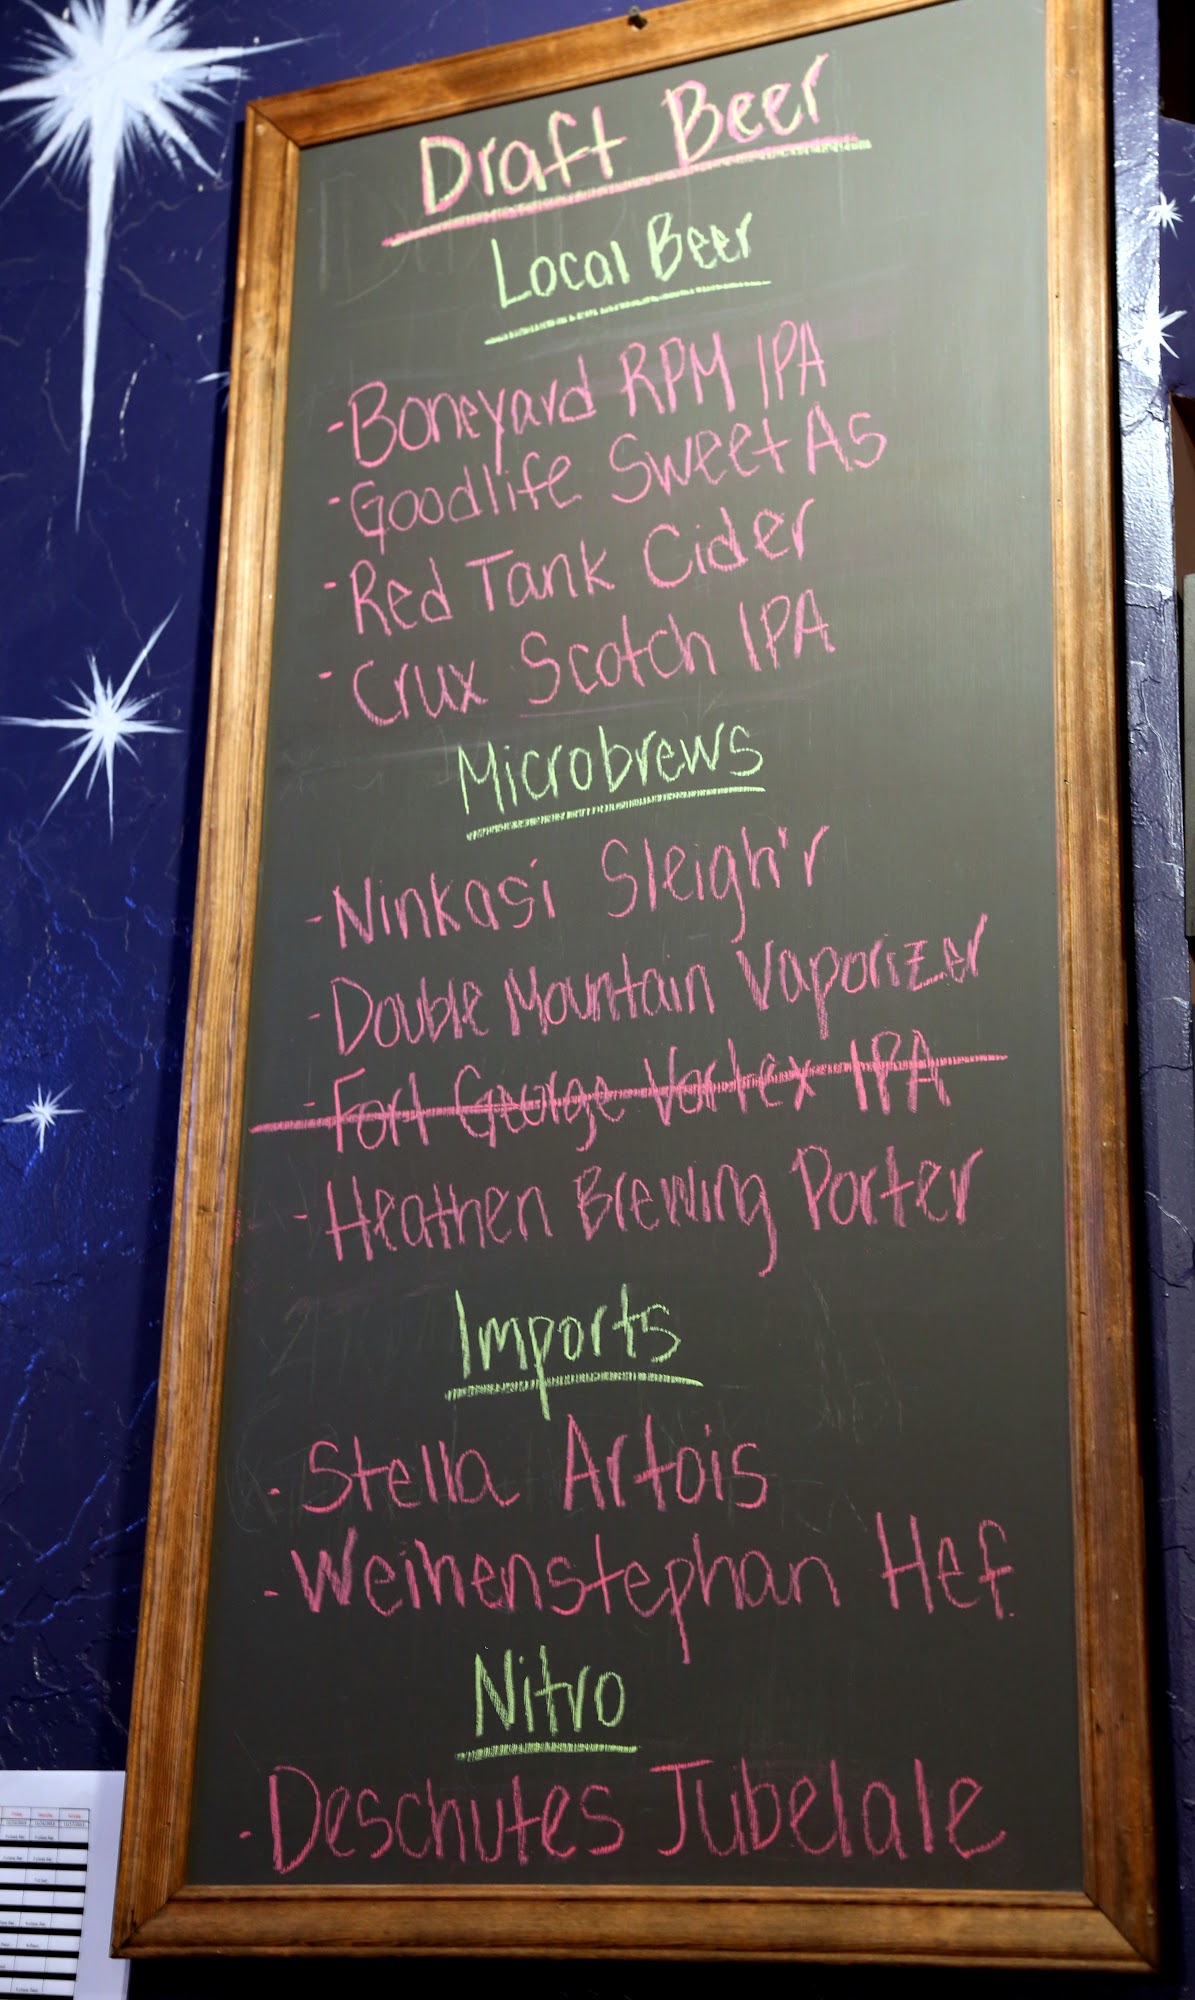 Draft Beer
Local Beer
- Boneyard RPM IPA
- Goodlife Sweet As
- Red Tank Cider
- Crux Scotch IPA
Microbrews
- Ninkasi Sleigh'r
- Double Mountain Vaporizer
- Fort George Vortex IPA
- Heathen Brewing Porter
Imports
- Stella Artois
- Weihenstephan Hef.
Nitro
- Deschutes Jubelale